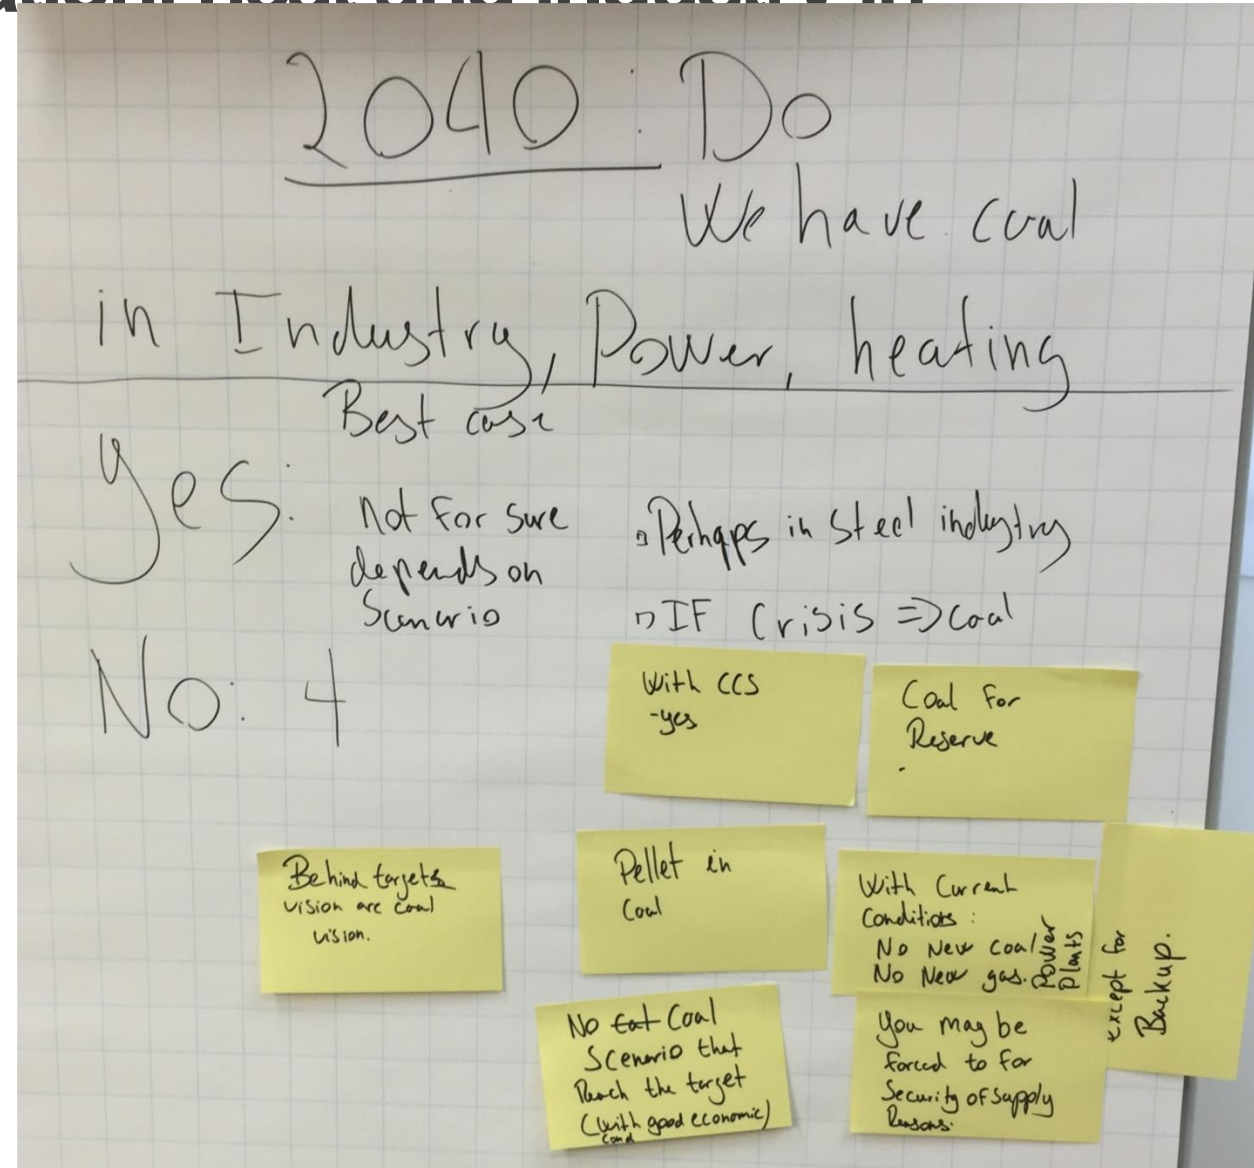 2040: Do
We have coal
in Industry, Power, heating
Best case
Yes:
not for sure
depends on
Scenario
▫ Perhaps in Steel industry
▫ IF Crisis => Coal
No: 4
With CCS
-yes
Coal for
Reserve
.
Behind targets
vision are coal
vision.
Pellet in
Coal
With Current
Conditions:
No New coal
No New gas.
Power
Plants
except for
Backup.
No Coal
Scenario that
Reach the target
(with good economic)
cond
You may be
forced to for
Security of supply
Reasons.